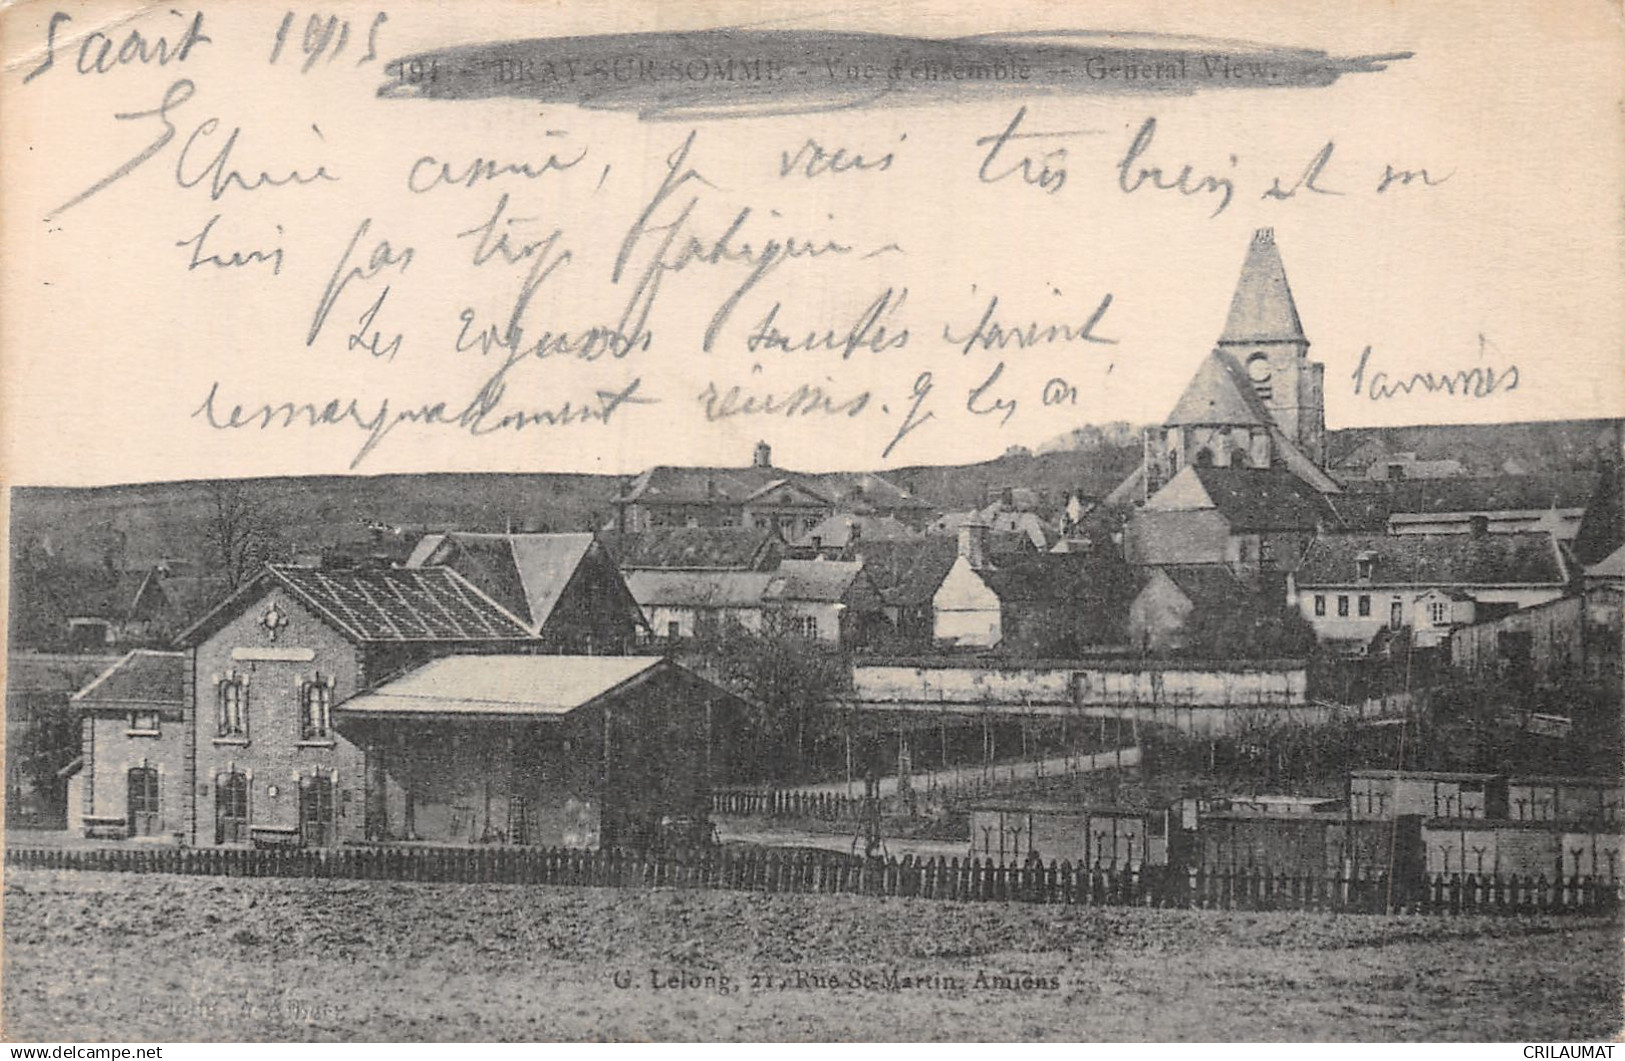 5 août 1915
194 - BRAY-SUR-SOMME - Vue d'ensemble - General View.
Chérie aimée, je vais très bien et ne
suis pas trop fatigué
Les rognons sautés étaient
remarquablement réussis. Je les ai
savourés
G. Lelong, 21, Rue St-Martin, Amiens
delcampe.net
CRILAUMAT